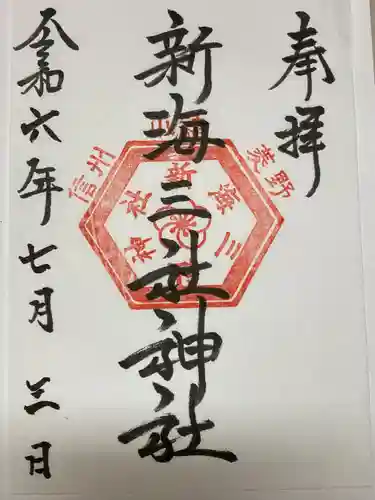 奉拝
新海三社神社
令和六年七月三日
信州
新海三社神社